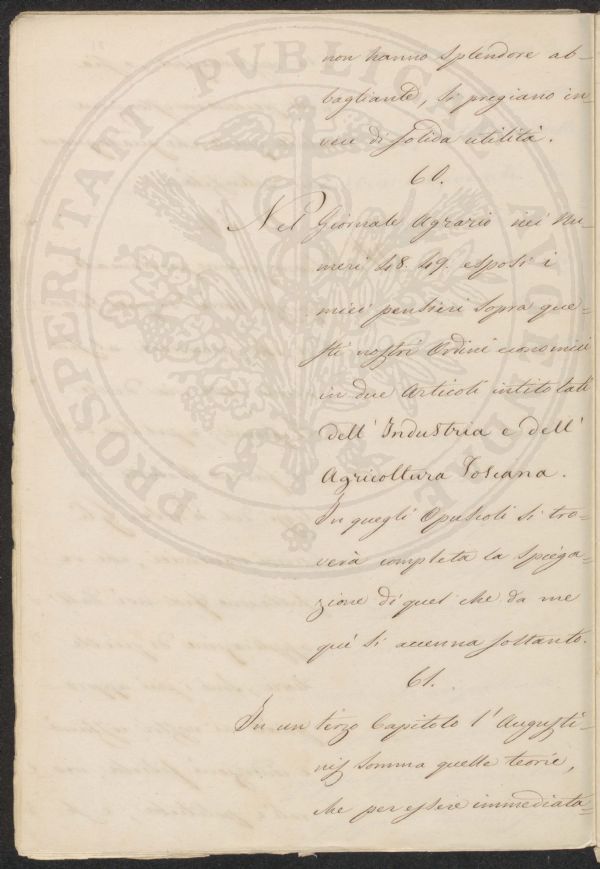 non hanno splendore ab-
bagliante, si pregiano in-
vece di solida utilità.
60.
Nel Giornale Agrario nei Nu-
meri 48. 49. esposi i
miei pensieri sopra que-
sti nostri Ordini economici
in due Articoli intitolati
dell' Industria e dell'
Agricoltura Toscana.
In quegli Opuscoli si tro-
verà completa la spiega-
zione di quel che da me
quì si accenna soltanto.
61.
In un terzo Capitolo l'Augusti-
nis somma quelle teorie,
che per essere immediata-
PROSPERITATI PVBLICAE AVGENDAE